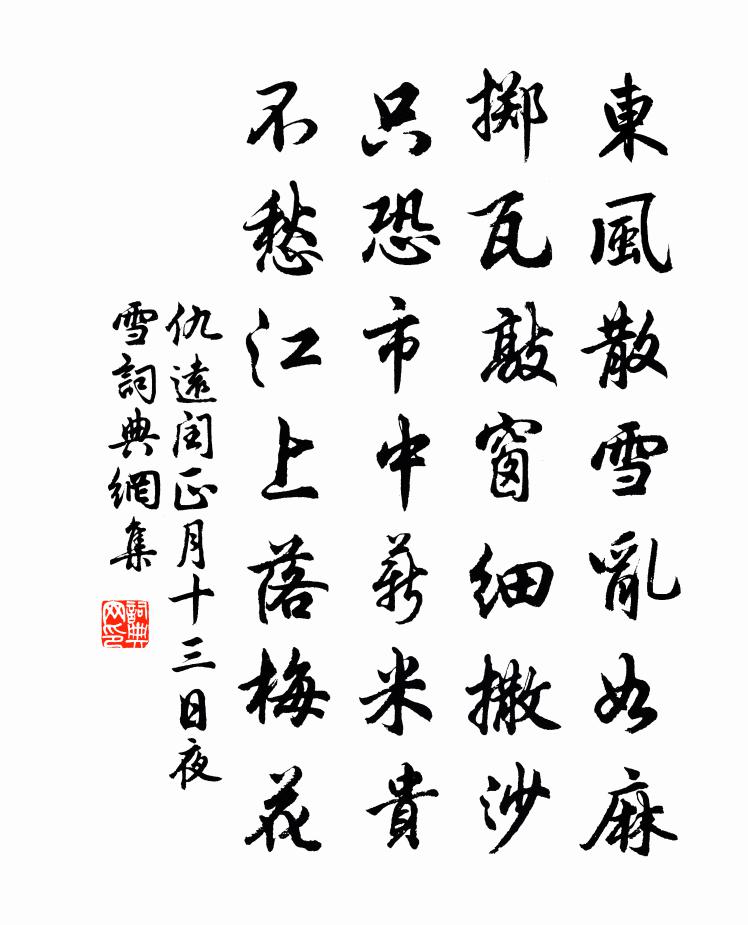 東風散雪亂如麻
擲瓦敲窗細撒沙
只恐市中薪米貴
不愁江上落梅花
仇遠閏正月十三日夜
雪詞典網集
詞典网印